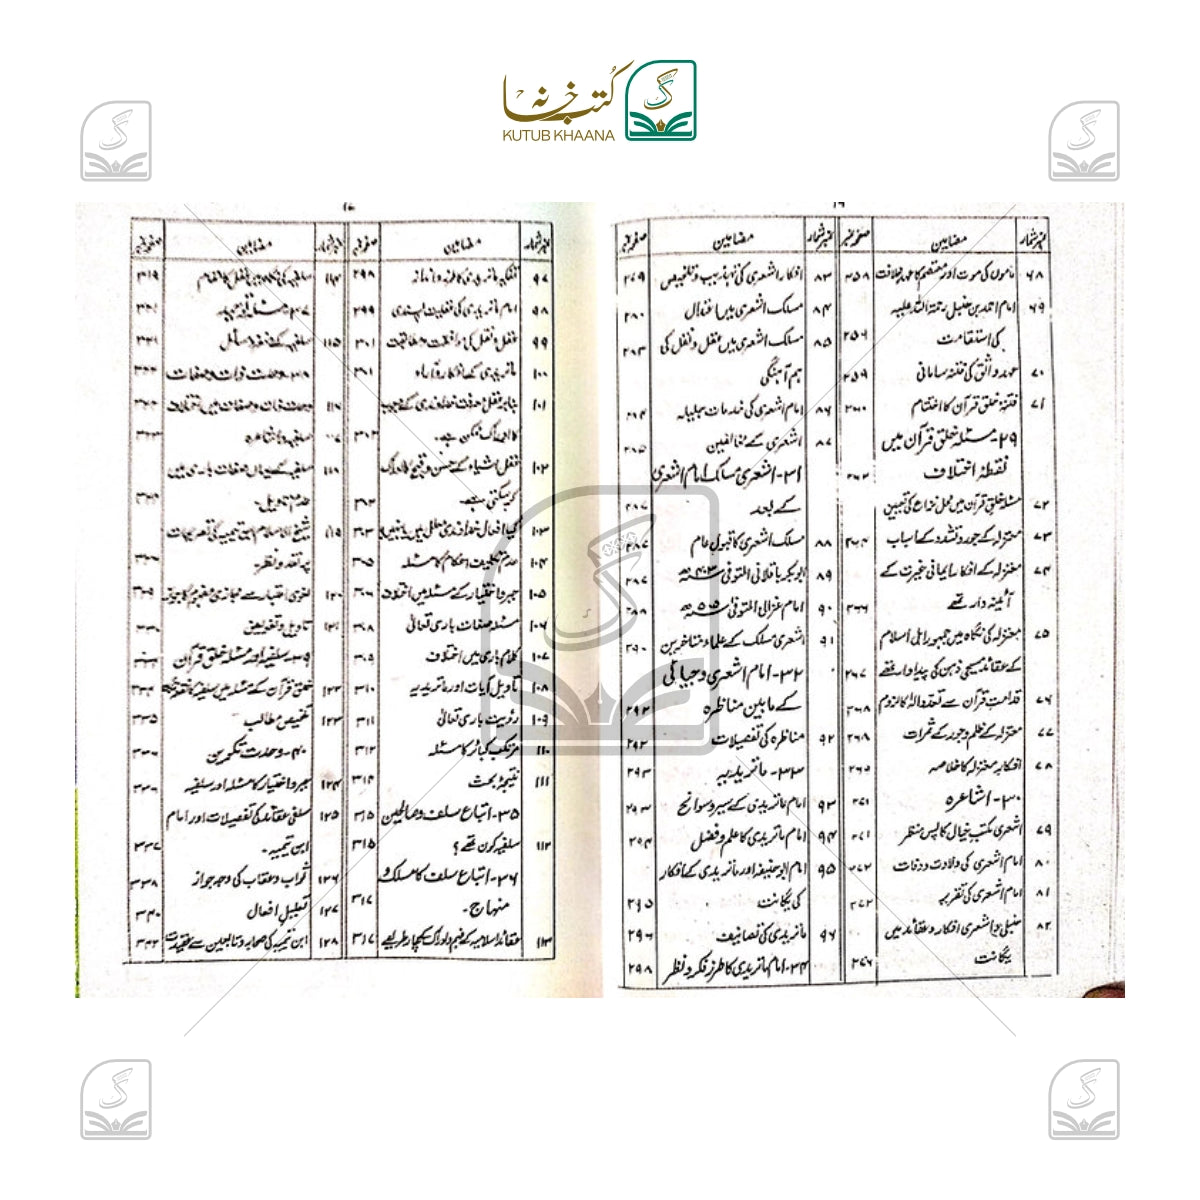 کتب خانہ
KUTUB KHAANA
۱۶
نمبر شمار مضامین صفحہ نمبر
۶۸ ماموں کی موت اور معتصم کا عہد خلافت ۲۵۸
۶۹ امام احمد بن حنبل رحمۃ اللہ علیہ
کی استقامت ۲۵۶
۷۰ عہد واثق کی فتنہ سامانی ۲۵۹
۷۱ فتنۂ خلق قرآن کا اختتام ۲۶۰
۲۹- مسئلہ خلق قرآن میں
نقطۂ اختلاف ۲۶۲
۷۲ مسئلہ خلق قرآن میں محل نزاع کی تعیین
۷۳ معتزلہ کے جمود و تشدد کے اسباب ۲۶۴
۷۴ معتزلہ کے افکار ایمانی غیرت کے
آئینہ دار تھے ۲۶۶
۷۵ معتزلہ کی نگاہ میں جمہور اہل اسلام
کے عقائد مسیحی ذہن کی پیداوار تھے ۲۶۷
۷۶ قدامت قرآن سے تعدد الٰہ کا لزوم ۲۶۸
۷۷ معتزلہ کے ظلم و جور کے ثمرات ۲۶۸
۷۸ افکار معتزلہ کا خلاصہ ۲۶۵
۳۰- اشاعرہ ۲۷۱
۷۹ اشعری مکتب خیال کا پس منظر ۲۷۱
۸۰ امام اشعری کی ولادت و وفات ۲۷۲
۸۱ امام اشعری کی تقریر ۲۷۲
۸۲ حنبلی و اشعری افکار و عقائد میں
یگانت ۲۷۶
نمبر شمار مضامین صفحہ نمبر
۸۳ افکار اشعری کی تہذیب و تلخیص ۲۷۹
۸۴ مسلک اشعری میں اعتدال ۲۸۰
۸۵ مسلک اشعری میں عقل و نقل کی ۲۸۳
ہم آہنگی
۸۶ امام اشعری کی خدمات جلیلہ ۲۸۴
۸۷ اشعری کے مخالفین ۲۸۵
۳۱- اشعری مسلک امام اشعری
کے بعد ۲۸۷
۸۸ مسلک اشعری کا قبول عام ۲۸۷
۸۹ ابوبکر باقلانی المتوفی ۴۰۳ھ ۲۸۷
۹۰ امام غزالی المتوفی ۵۰۵ھ ۲۸۸
۹۱ اشعری مسلک کے علماء متاخرین ۲۹۰
۳۲- امام اشعری و جبائی
کے مابین مناظرہ ۲۹۲
۹۲ مناظرہ کی تفصیلات ۲۹۲
۳۳- ماتریدیہ ۲۹۳
۹۳ امام ماتریدی کے سیر و سوانح ۲۹۳
۹۴ امام ماتریدی کا علم و فضل ۲۹۴
۹۵ امام ابو حنیفہ اور ماتریدی کے افکار
کی یگانت ۲۹۵
۹۶ ماتریدی کی تصانیف ۲۹۶
۳۴- امام ماتریدی کا طرز فکر و نظر ۲۹۸
۱۷
نمبر شمار مضامین صفحہ نمبر
۹۷ ۲۹۸
۹۸ امام ماتریدی کی عقلیت پسندی ۲۹۹
۹۹ عقل و نقل کی موافقت و مطابقت ۳۰۱
۱۰۰ ماتریدی کے افکار و آراء ۳۰۱
۱۰۱ بنابر عقل معرفت خداوندی کے وجوب
کا ادراک ممکن ہے۔ ۳۰۲
۱۰۲ عقل اشیاء کے حسن و قبح کا ادراک
کر سکتی ہے۔ ۳۰۲
۱۰۳ کیا افعال خداوندی معلل ہیں یا نہیں ۳۰۳
۱۰۴ عدم تکلیف احکام کا مسئلہ ۳۰۵
۱۰۵ جبر و اختیار کے مسئلہ میں اختلاف ۳۰۶
۱۰۶ مسئلہ صفات باری تعالیٰ ۳۰۸
۱۰۷ کلام باری میں اختلاف ۳۰۹
۱۰۸ تاویل آیات اور ماتریدیہ ۳۱۰
۱۰۹ رؤیت باری تعالیٰ ۳۱۱
۱۱۰ مرتکب کبائر کا مسئلہ ۳۱۲
۱۱۱ نتیجۂ بحث ۳۱۴
۳۵- اتباع سلف و صالحین ۳۱۵
۱۱۲ سلفیہ کون تھے؟ ۳۱۵
۳۶- اتباع سلف کا مسلک و
منہاج۔ ۳۱۷
۱۱۳ عقائد اسلامیہ کے فہم و ادراک کے چار طریقے ۳۱۷
نمبر شمار مضامین صفحہ نمبر
۱۱۴ ۳۱۹
۳۷- مسئلہ توحید
۱۱۵ سلفیہ کے نزدیک مسائل ۳۲۱
۳۸- وحدت ذات و صفات
۱۱۶ وحدت ذات و صفات میں اختلاف
۱۱۷ سلفیہ و اشاعرہ ۳۲۳
۱۱۸ سلفیہ کے یہاں صفات باری میں
عدم تاویل۔ ۳۲۴
۱۱۹ شیخ الاسلام ابن تیمیہ کی تصریحات
پر نقد و نظر ۳۲۶
۱۲۰ لغوی اعتبار سے مجازی مفہوم کا جواز ۳۲۹
۱۲۱ تاویل و تفویض ۳۳۰
۳۹- سلفیہ اور مسئلہ خلق قرآن ۳۳۳
۱۲۲ خلق قرآن کے مسئلہ میں سلفیہ کا نقطۂ نگاہ ۳۳۴
۱۲۳ تلخیص مطالب ۳۳۵
۴۰- وحدت تکوین ۳۳۶
۱۲۴ جبر و اختیار کا مسئلہ اور سلفیہ ۳۳۶
۱۲۵ سلفی عقائد کی تفصیلات اور امام
ابن تیمیہ۔ ۳۳۷
۱۲۶ ثواب و عقاب کی وجہ جواز ۳۳۸
۱۲۷ تعلیل افعال ۳۴۰
۱۲۸ ابن تیمیہ کی صحابہ و تابعین سے عقیدت ۳۴۲